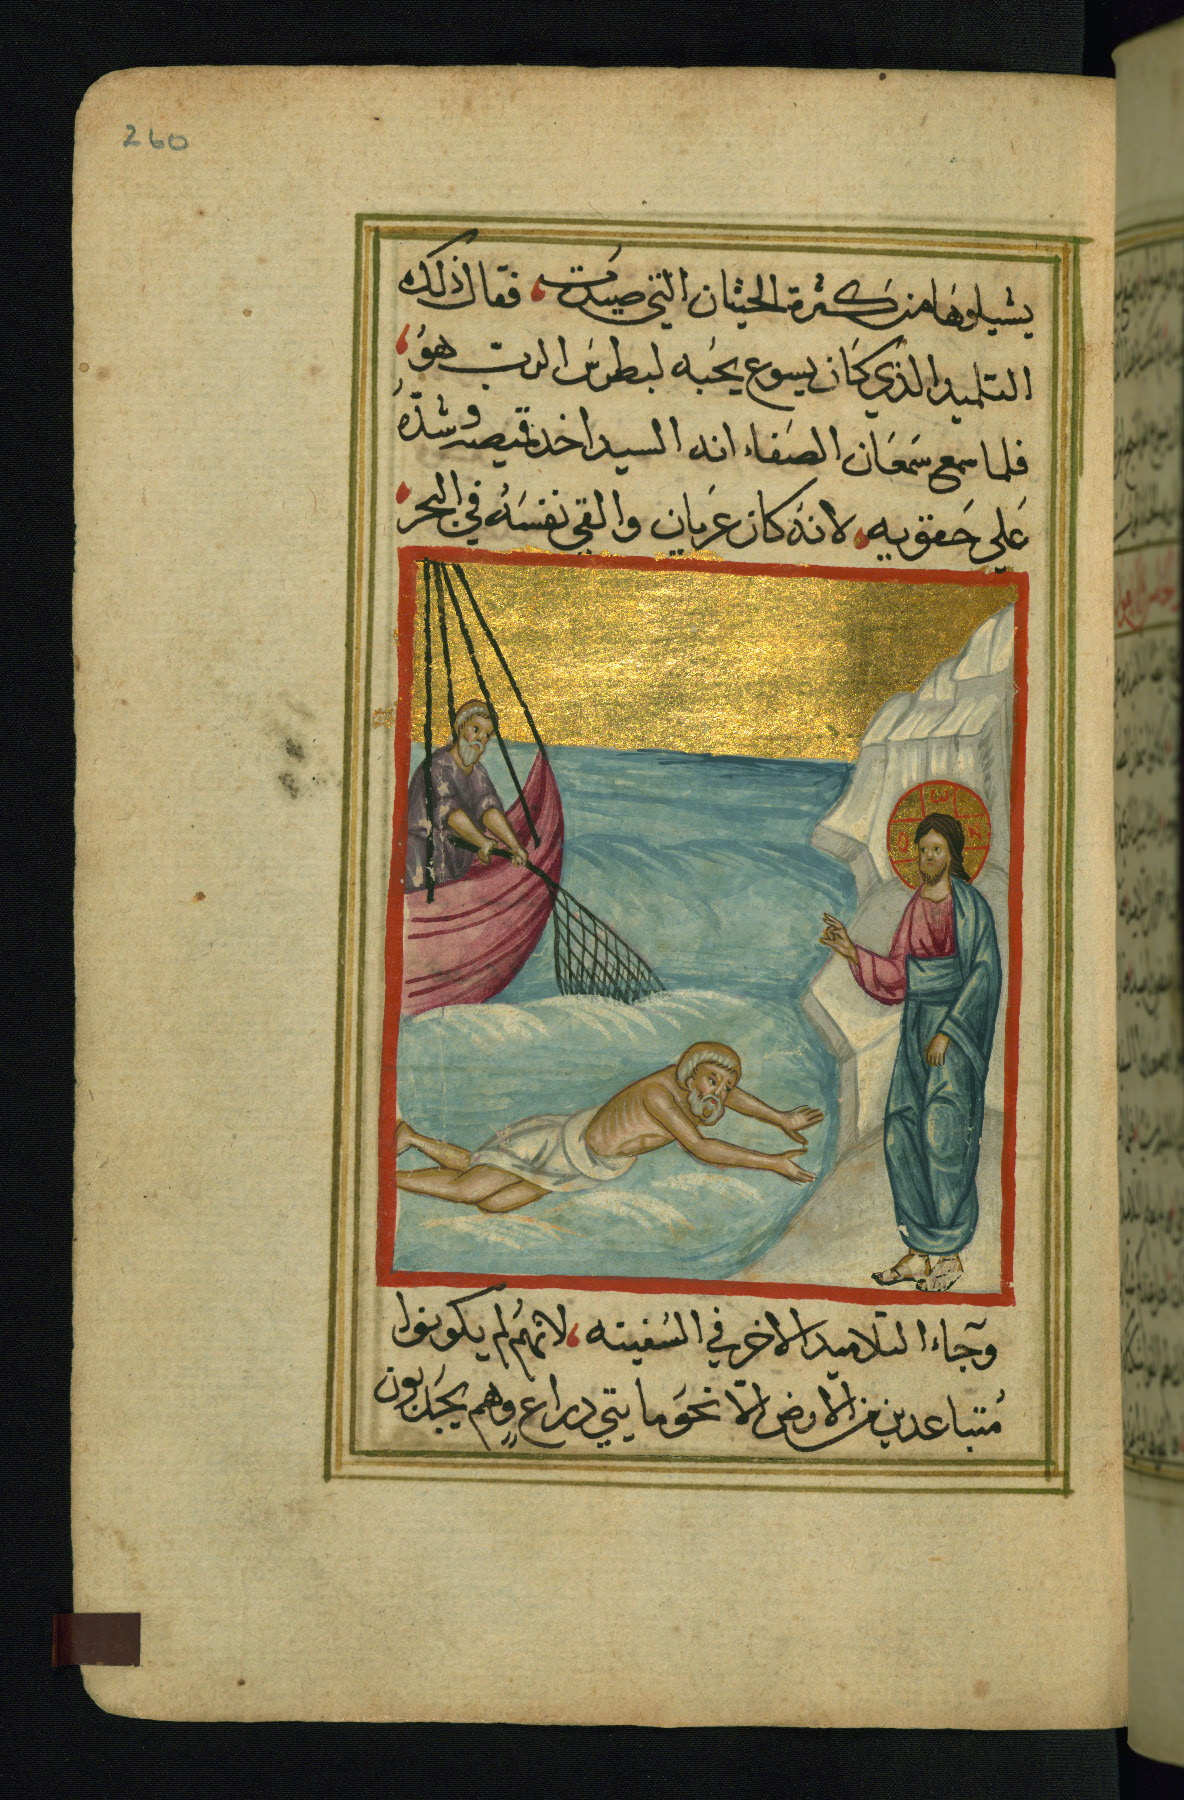 260
يشيلوها من كثرة الحيتان التي صيدت، فقال ذلك
التلميد الذي كان يسوع يحبه لبطرس الرب هو،
فلما سمع سمعان الصفاء انه السيد اخد قميصه وشده
علي حقويه، لانه كان عريان والقي نفسه في البحر،
وجاء التلاميد الاخر في السفينه، لانهم لم يكونوا
متباعدين من الارض الا نحو مايتي دراع وهم يجدبون